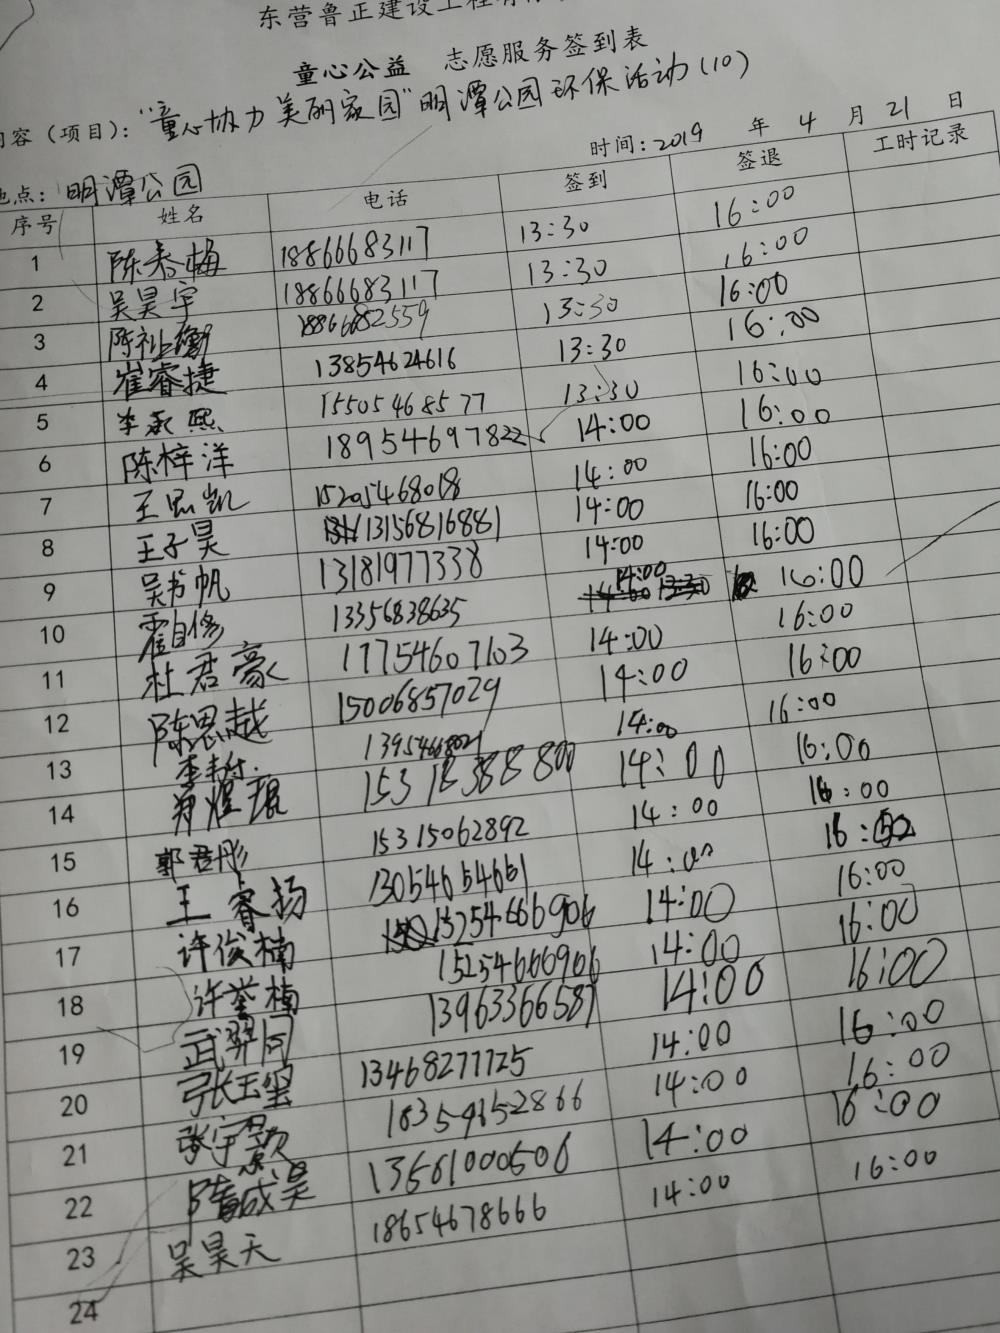 东营鲁正建设工程有限
童心公益 志愿服务签到表
内容（项目）："童心协力 美丽家园"明潭公园环保活动(10)
时间:2019 年 4 月 21 日
地点：明潭公园
序号 姓名 电话 签到 签退 工时记录
1 陈秀梅 18866683117 13:30 16:00
2 吴昊宇 18866683117 13:30 16:00
3 陈祉衡 18866682559 13:30 16:00
4 崔睿捷 13854624616 13:30 16:00
5 李承熙 15505468577 13:30 16:00
6 陈梓洋 18954697822 14:00 16:00
7 王思凯 15205468018 14:00 16:00
8 王子昊 13156816881 14:00 16:00
9 吴书帆 13181977338 14:00 16:00
10 霍自修 13356838635 14:00 16:00
11 杜君豪 17754607103 14:00 16:00
12 陈思越 15006857029 14:00 16:00
13 14:00 16:00
14 郑煜琨 15318388800 14:00 16:00
15 郭君彤 15315062892 14:00 16:00
16 王睿扬 13054654661 14:00 16:00
17 许俊楠 15254666906 14:00 16:00
18 许誉楠 15254666906 14:00 16:00
19 武羿同 13963366587 14:00 16:00
20 张玉玺 13468277725 14:00 16:00
21 张宇 18359152866 14:00 16:00
22 陈成昊 13561000506 14:00 16:00
23 吴昊天 18654678666 14:00 16:00
24